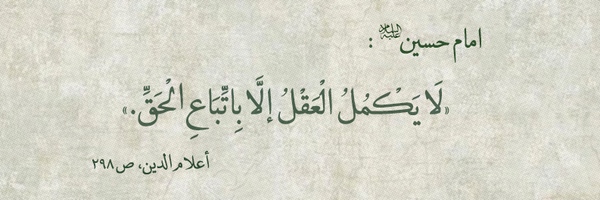 امام حسین علیه‌السلام :
«لَا يَكْمُلُ الْعَقْلُ إلَّا بِاتِّبَاعِ الْحَقِّ.»
أعلام الدين، ص۲۹۸